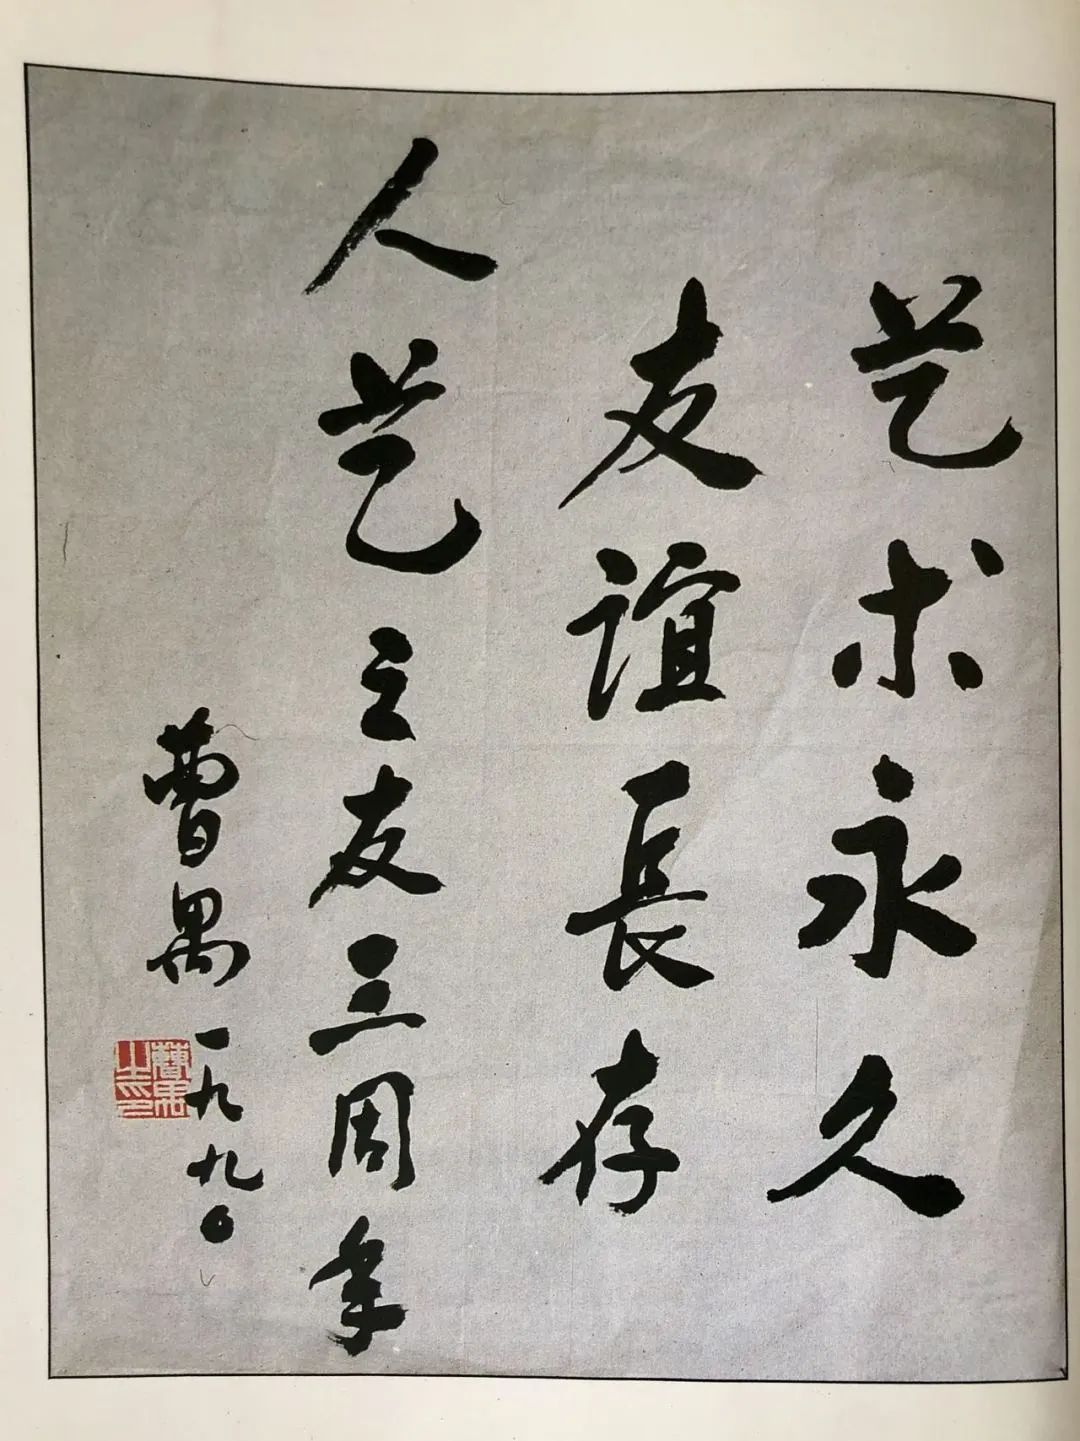 艺术永久
友谊長存
人艺之友三周年
曹禺
一九九〇
曹禺
之印